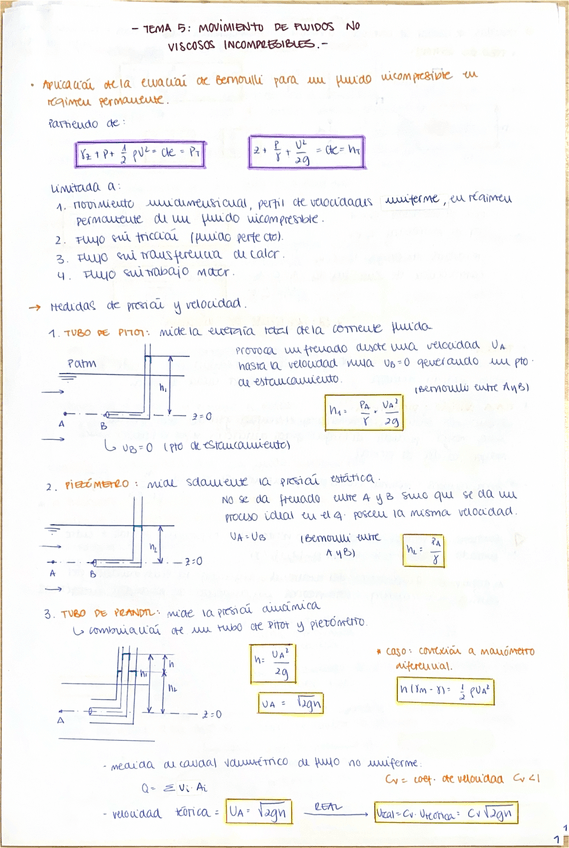 - TEMA 5: MOVIMIENTO DE FLUIDOS NO
VISCOSOS INCOMPRESIBLES. -
• Aplicación de la ecuación de Bernoulli para un fluido incompresible en
régimen permanente.
Partiendo de:
γz + P + 1/2 ρU² = cte = P_T
z + P/γ + U²/2g = cte = h_T
Limitada a:
1. Movimiento unidimensional, perfil de velocidades uniforme, en régimen
permanente de un fluido incompresible.
2. Flujo sin fricción (fluido perfecto).
3. Flujo sin transferencia de calor.
4. Flujo sin trabajo motor.
→ Medidas de presión y velocidad.
1. TUBO DE PITOT: mide la energía total de la corriente fluida
Provoca un frenado desde una velocidad U_A
hasta la velocidad nula U_B=0 generando un pto.
de estancamiento.
(Bernoulli entre A y B)
Patm
h₁
A
B
z=0
h₁ = P_A/γ + U_A²/2g
↳ U_B=0 (pto de estancamiento)
2. PIEZÓMETRO: mide solamente la presión estática.
No se da frenado entre A y B sino que se da un
proceso ideal en el q. poseen la misma velocidad.
U_A=U_B
(Bernoulli entre
A y B)
h₂ = P_A/γ
h₂
A
B
z=0
3. TUBO DE PRANDTL: mide la presión dinámica
↳ combinación de un tubo de Pitot y piezómetro.
h₁
h
h₂
A
z=0
h = U_A²/2g
U_A = √2gh
* caso: conexión a manómetro
diferencial.
h(γm - γ) = 1/2 ρU_A²
- medida de caudal volumétrico de flujo no uniforme.
Q = Σ Ui · Ai
Cv = coef. de velocidad Cv<1
- velocidad teórica = U_A = √2gh
REAL
Ureal = Cv · Uteórica = Cv √2gh
1
1